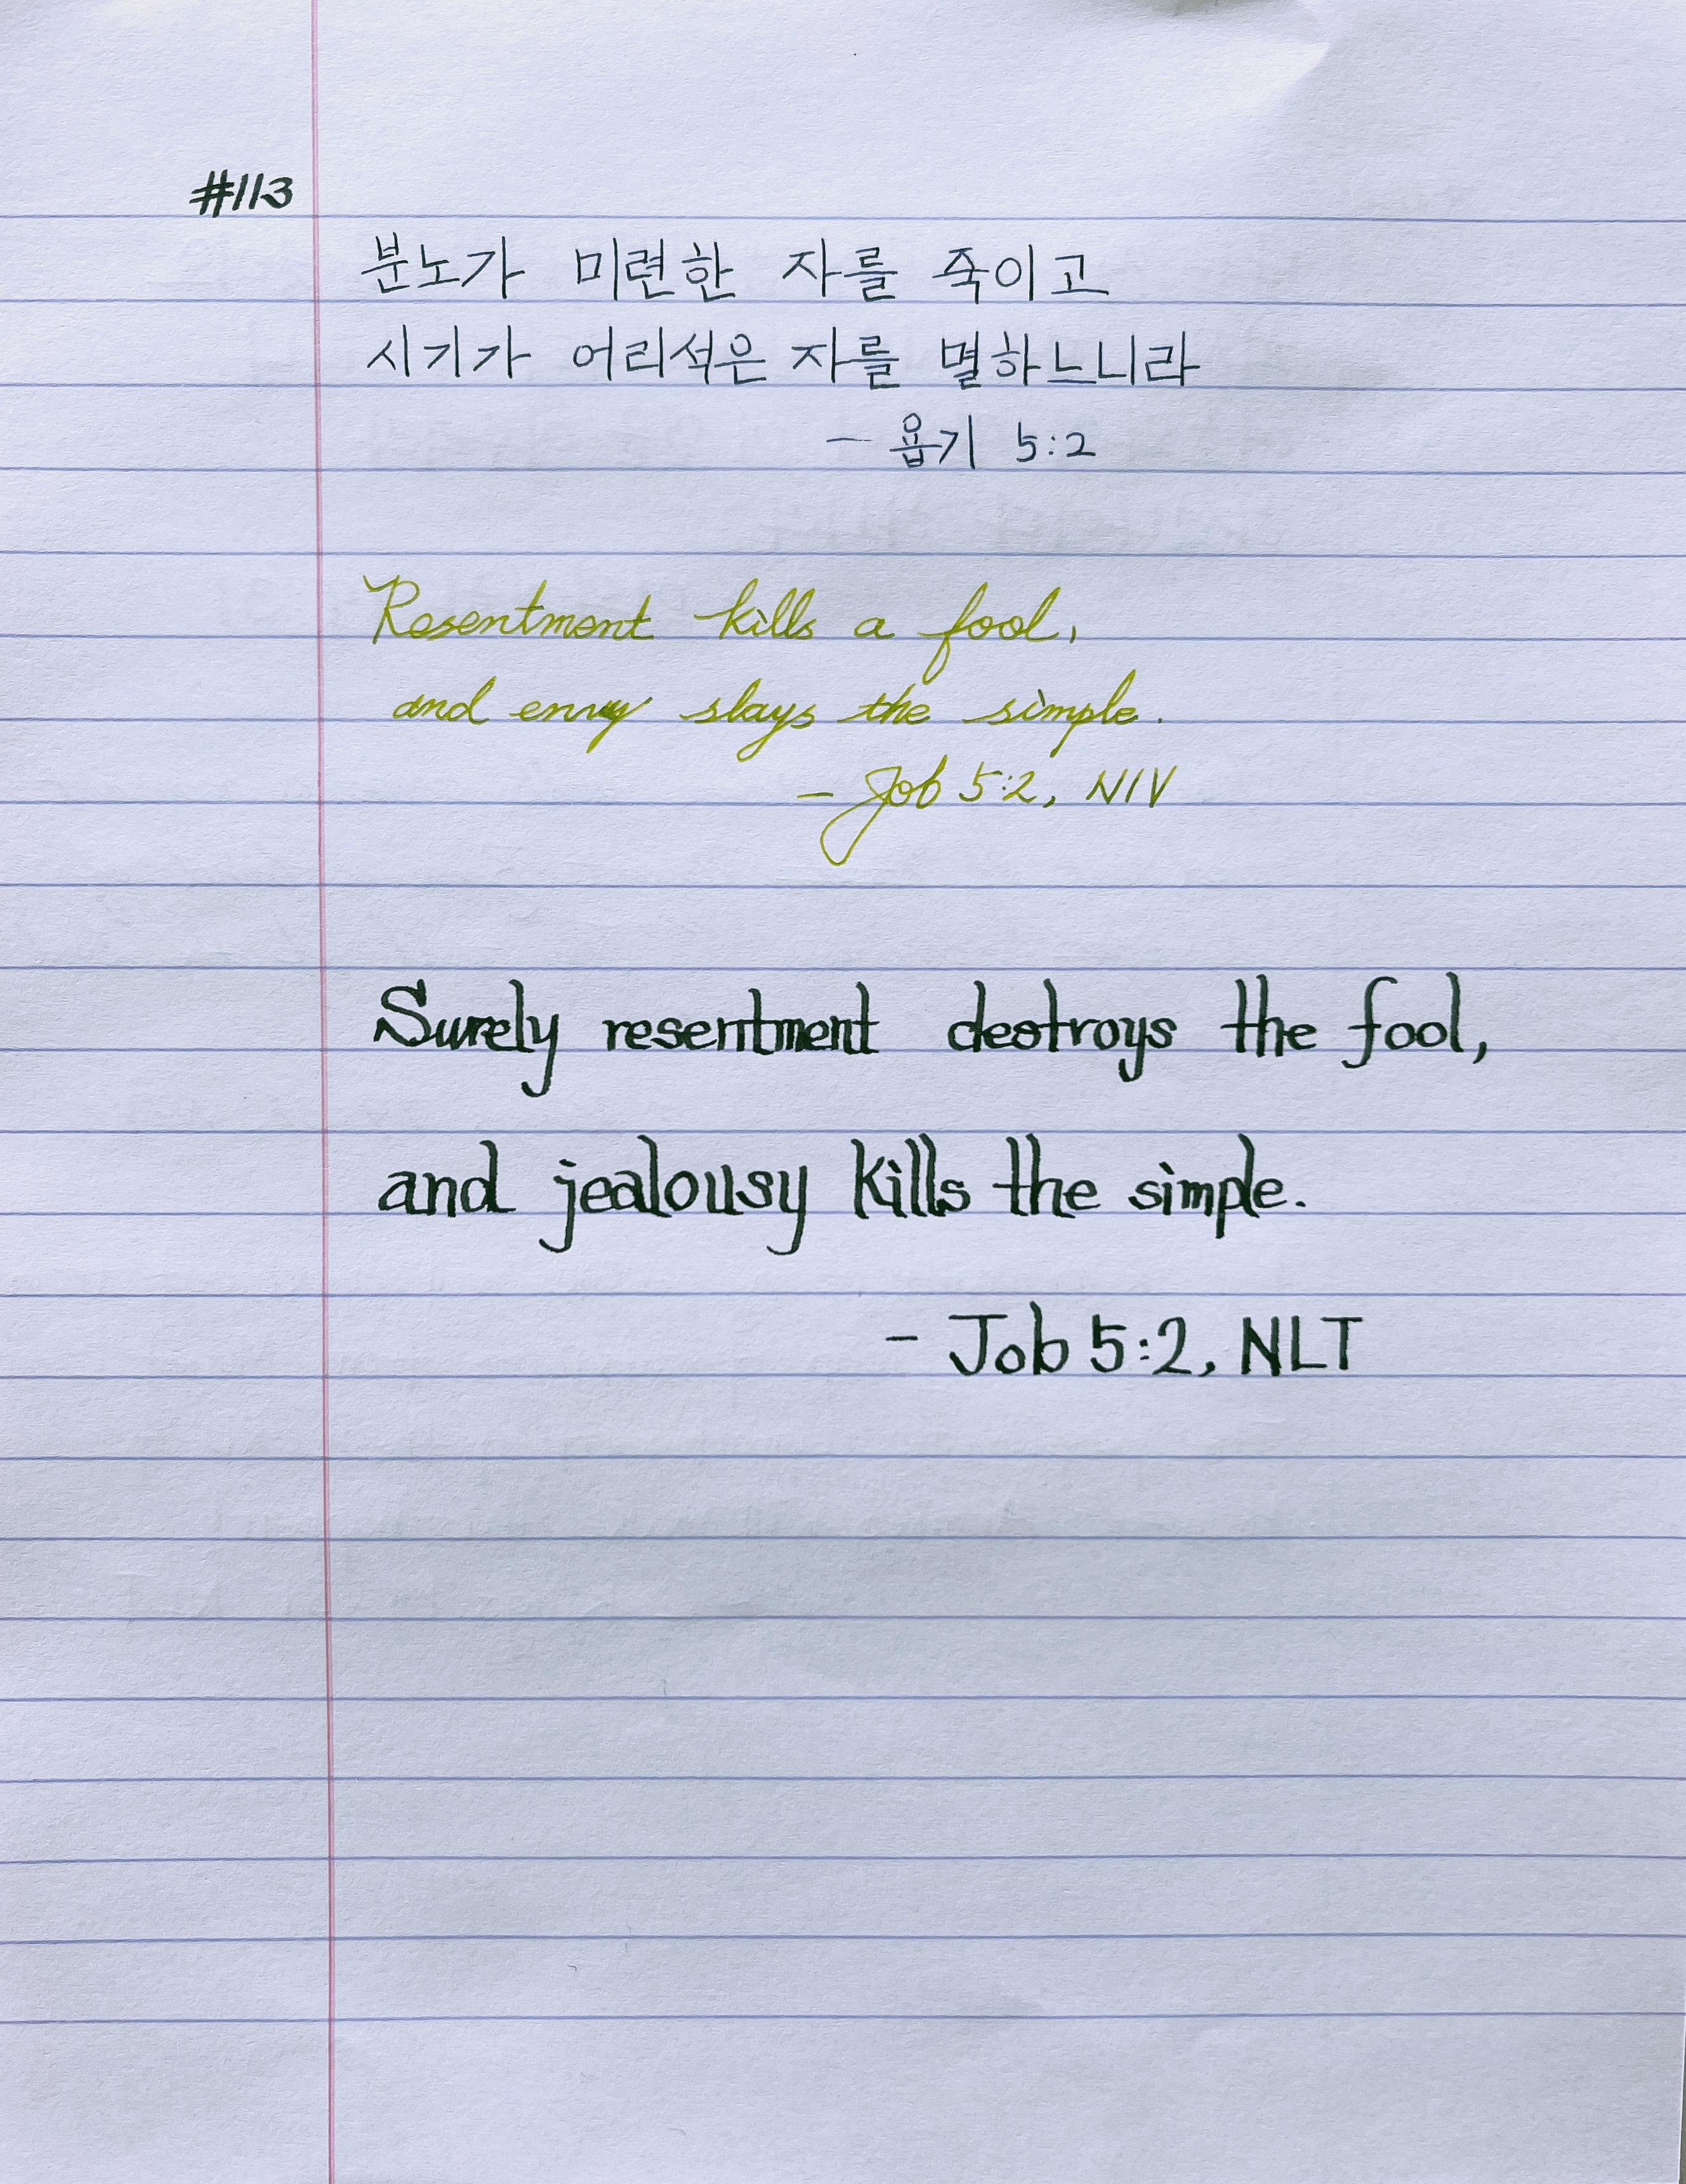 #113
분노가 미련한 자를 죽이고
시기가 어리석은 자를 멸하느니라
- 욥기 5:2
Resentment kills a fool,
and envy slays the simple.
- Job 5:2, NIV
Surely resentment destroys the fool,
and jealousy kills the simple.
- Job 5:2, NLT